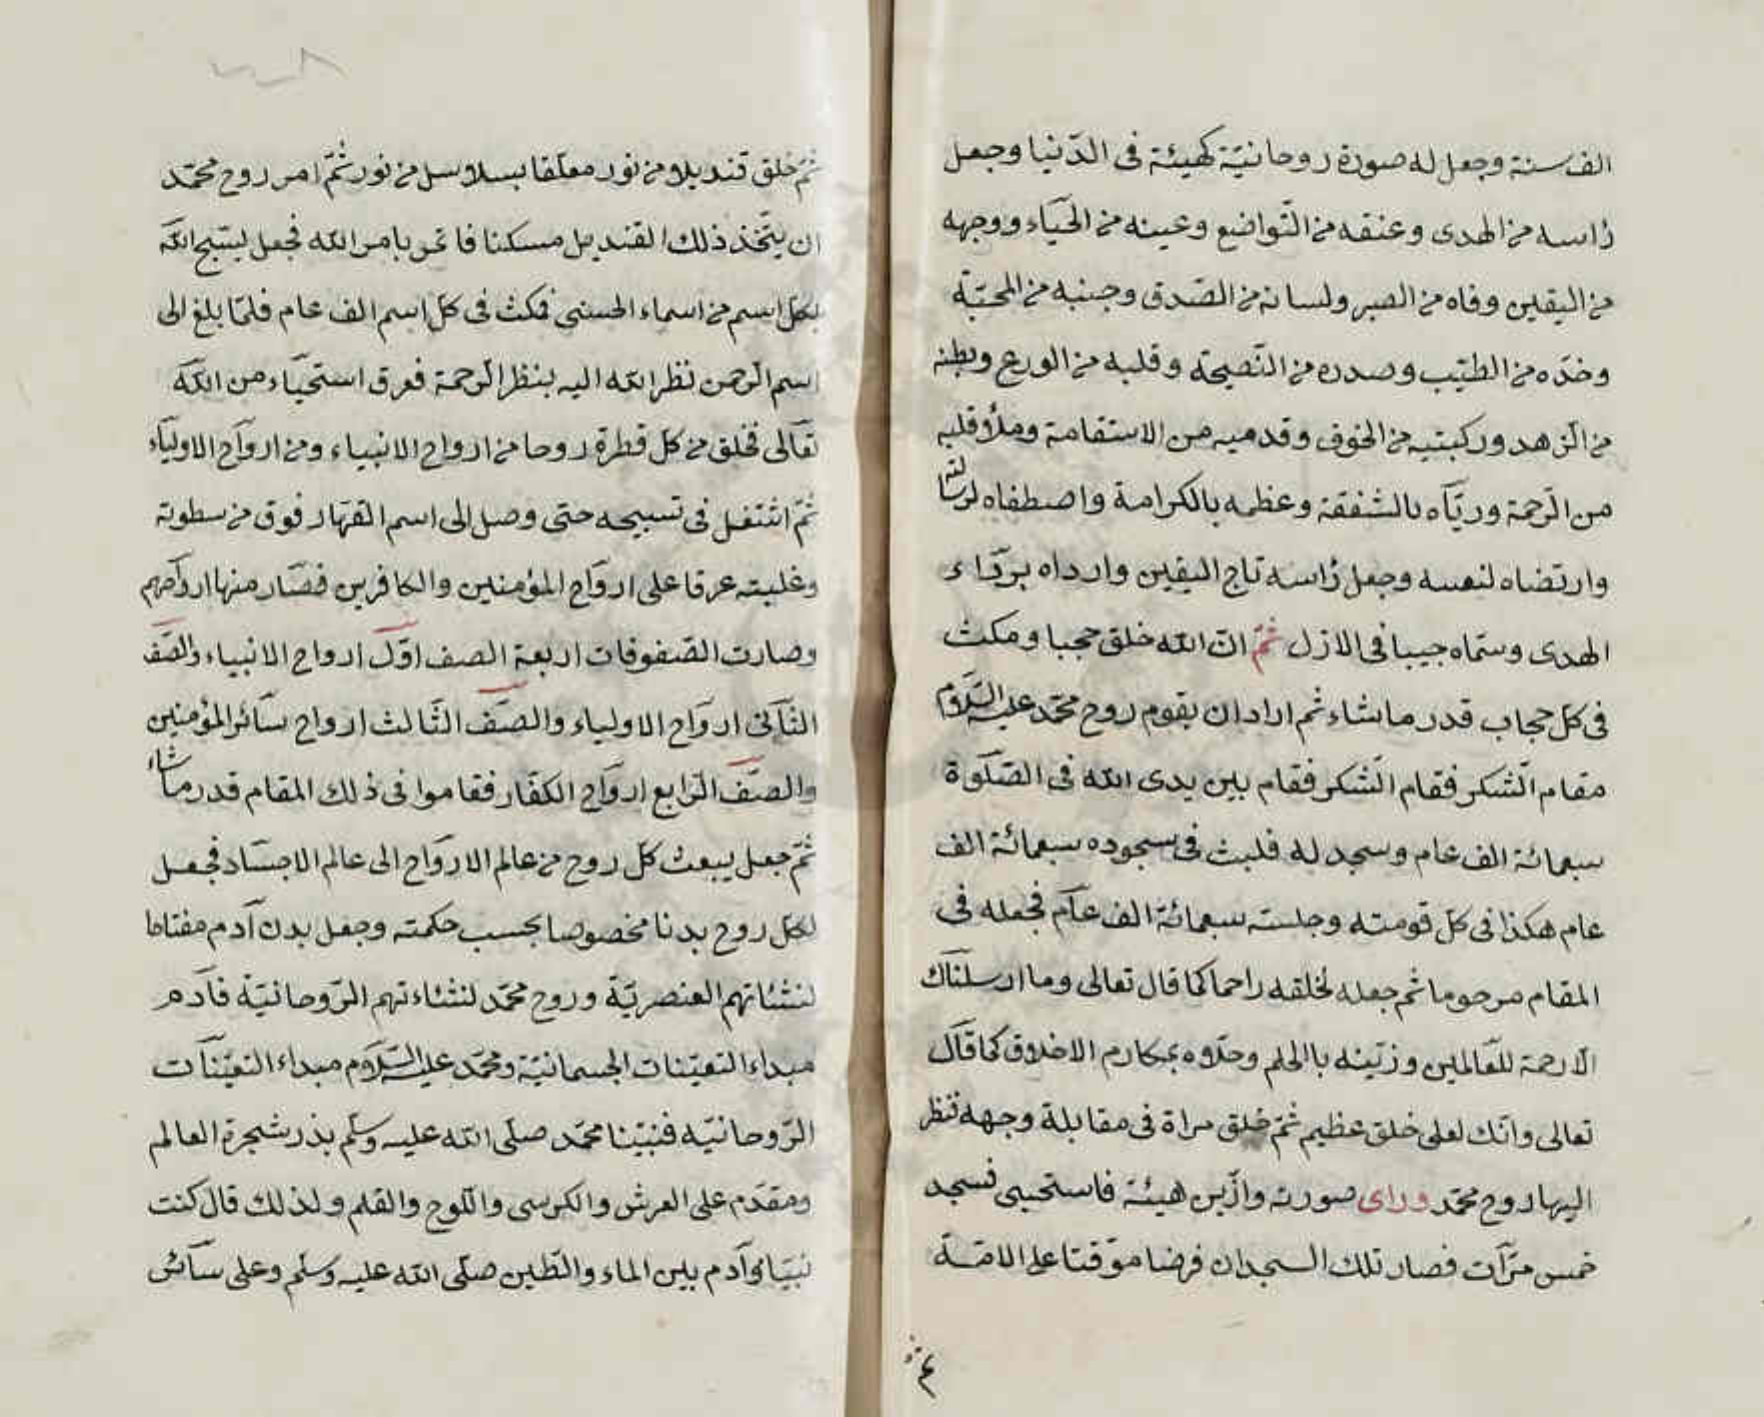 الف سنة وجعل له صورة روحانيّة كهيئة فى الدّنيا وجعل
رأسه من الهدى وعنقه من التّواضع وعينه من الحيآء ووجهه
من اليقين وفاه من الصبر ولسانه من الصّدق وجنبه من المحبّة
وخدّه من الطيّب وصدره من النّصيحة وقلبه من الورع وبطنه
من الزّهد وركبتيه من الخوف وقدميه من الاستقامة وملأ قلبه
من الرّحمة وربّاه بالشفقة وعظمه بالكرامة واصطفاه لرسالته
وارتضاه لنفسه وجعل رأسه تاج اليقين وارداه بردآء
الهدى وسمّاه حبيبا فى الازل ثمّ انّ الله خلق حجبا ومكث
فى كل حجاب قدر ما شاء ثم اراد ان يقوم روح محمّد عليه السّلام
مقام الشّكر فقام الشّكر فقام بين يدى الله فى الصّلوة
سبعمائة الف عام وسجد له فلبث فى سجوده سبعمائة الف
عام هكذا فى كلّ قومته وجلسته سبعمائة الف عآم فجعله فى
المقام مرحوما ثم جعله لخلقه راحما كما قال تعالى وما ارسلناك
الّا رحمة للعالمين وزيّنه باالحلم وحلّاه بمكارم الاخلاق كما قآل
تعالى وانّك لعلى خلق عظيم ثمّ خلق مراة فى مقابلة وجهه فنظر
اليها روح محمّد وراى صورته وازّين هيئة فاستحيى فسجد
خمس مرّآت فصار تلك السجدان فرضا موّقتا على الامّة
ثمّ خلق قنديلا من نور معلّقا بسلاسل من نور ثمّ امر روح محمّد
ان يتّخذ ذلك القنديل مسكنا بامر الله فجعل يسّبح الله
بكلّ اسم من اسماء الحسنى فمكث فى كلّ اسم الف عام فلمّا بلغ الى
اسم الرّحمن نظر الله اليه بنظر الرّحمة فعرق استحيآء من الله
تعآلى فخلق من كل قطرة روحا من ارواح الانبياء ومن ارواح الاوليآء
ثمّ اشتغل فى تسبيحه حتى وصل الى اسم القهّار فوق من سطوته
وغلبته عرقا على اروآح المؤمنين والكافرين فصّار منها اروآحهم
وصارت الصّفوفات اربعة الصف اوّل ارواح الانبياء والصّف
الثّآنى اروآح الاولياء والصّف الثّالث ارواح سآئر المؤمنين
والصّف الرّابع اروآح الكفّار فقاموا فى ذلك المقام قدر ما شاء
ثمّ جعل يبعث كلّ روح من عالم الارواح الى عالم الاجسآد فجعل
لكلّ روح بدنا مخصوصا بحسب حكمته وجعل بدن آدم مفتاحا
لنشئاتهم العنصريّة وروح محمّد لنشاءتهم الرّوحانيّة فآدم
مبداء التعيّنات الجسمانيّة ومحمّد عليه السّلام مبداء التعيّنآت
الرّوحانيّه فنبيّنا محمّد صلّى الله عليه وسلّم بذر شجرة العالم
ومقدّم على العرش والكرسى واللّوح والقلم ولذلك قال كنت
نبيّا وآدم بين الماء والطّين صلّى الله عليه وسلّم وعلى سآئر